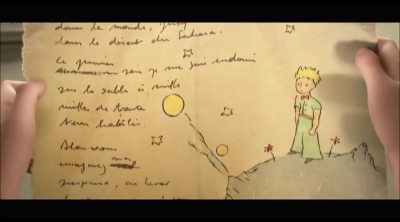 dans le monde,
dans le désert du Sahara.
Ce premier
soir je me suis endormi
sur le sable à mille
milles de toute
terre habitée.
Alors vous
imaginez ma
surprise, au lever